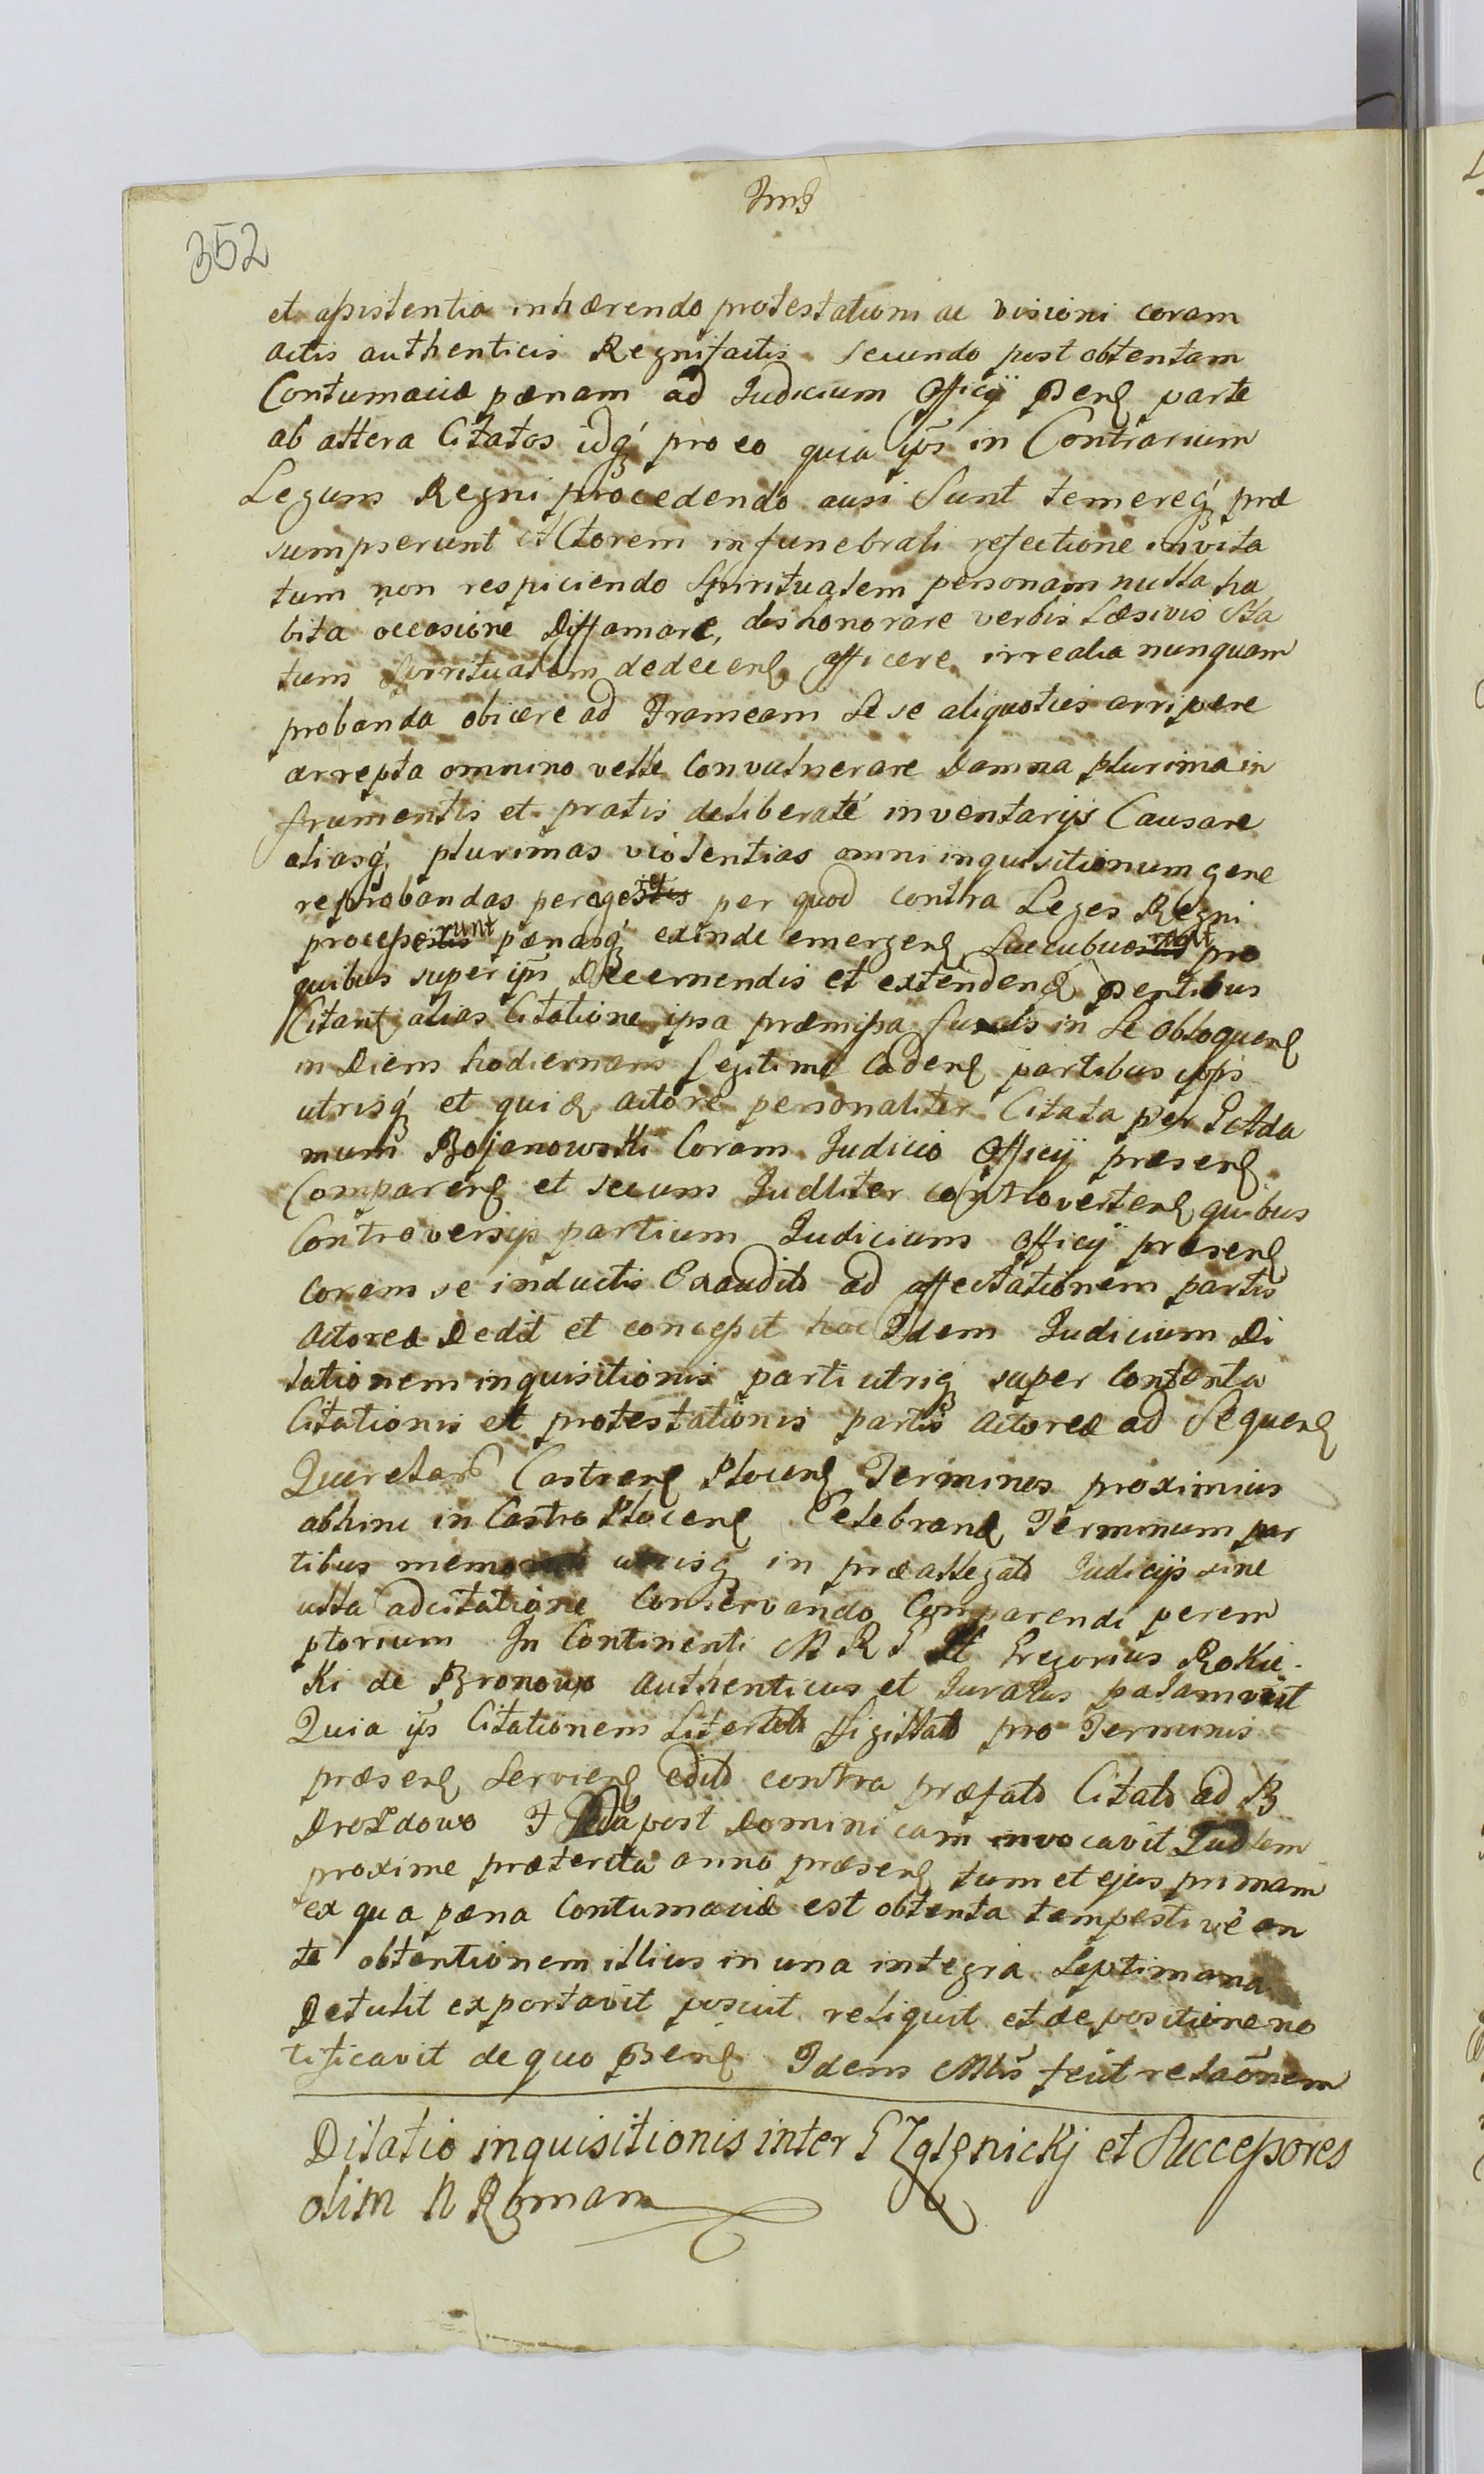 352
et assistentia inhærendo protestationi ac visioni coram
actis authenticis Regni factis secundo post obtentam
Contumaciæ pœnam ad Judicium Officij pñ parte
ab altera Citatos idq́ pro eo quia ijs in Contrarium
Legum Regni procedendo ausi Sunt temereq́ præ
sumpserunt Actorem in funebrali refectione invita
tum non respiciendo Spiritualem personam nulla ha
bita occasione Diffamare, deshonorare verbis Læsivis Sta
tum Spiritualem dedecen afficere irrealia nunquam
probanda obicere ad Frameam Se se aliquoties arripere
arrepta omnino velle Convulnerare Damna plurima in
frumentis et pratis deliberaté inventarijs Causare
aliasq́ plurimas violentias omni inquisitionum gene
re probandas per quod contra Leges Regni
processerunt pænasq́ exinde emergen Succubuerunt pro
quibus super ipsis Decernendis et extenden
Citan alias Citatione ipsa præmissa in Se obloquen
in Diem hodiernam legitime Caden partibus
utrisq́ et quidem Actore personaliter Citata per G Ada
mum Bojanowski Coram Judicio Officij præsen
Comparen et secum Judliter controverten quibus
Controversijs partium Judicium Officij præsen
coram se inductis Exaudit ad affectationem partis
Actoreæ Dedit et concessit hoc Idem Judicium Di
lationem inquisitionis parti utriq super Contenta
Citationis et protestationis partis Actoreæ ad Sequen
Querelar Castren Plocen Terminos proximius
abhinc in Castro Plocen Celebran Terminum par
tibus utrisq in præallegat Judicijs sine
ulla adcitatione Conservando Comparendi perem
ptorium In Continenti M R G Gregorius Rokic
ki de Bronowo authenticus et Juratus palam
Quia ijs Citationem Liter Sigillat pro Terminis
præsen Servien edit contra præfat Citat ad B
Drozdowo F post Dominicam invocavit
proxime præterita anno præsen tum et ejus primam
ex qua pœna Contumaciæ est obtenta tempestivè an
te obtentionem illius in una integra Septimana
Detulit exportavit posuit reliquit et de positione no
tificavit de quo Idem Mlis fecit relaōnem
Dilatio inquisitionis inter G Zglenickj et Successores
olim N Roman